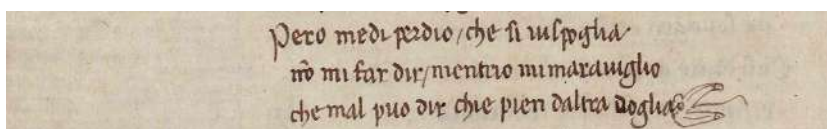 Pero medi perdio / che si uisfoglia
nō mi far dir / mentrio mimarauiglio
che mal puo dir chie pien daltra uoglia